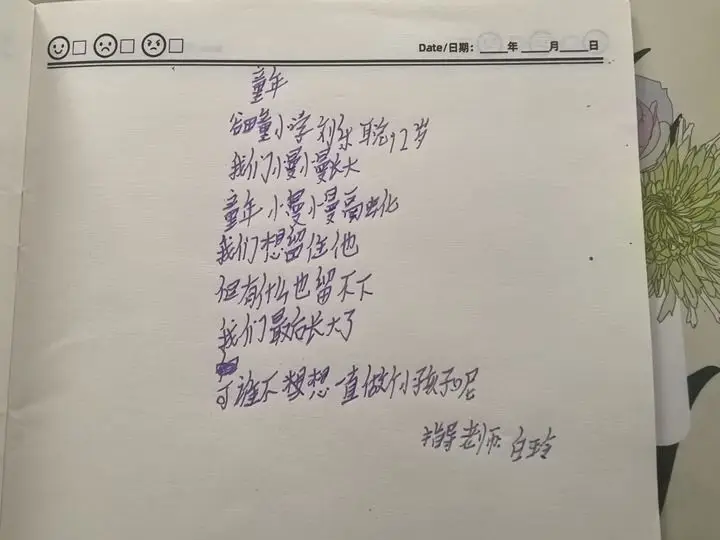 Date/日期: ____年 ____月 ____日
童年
小学 刘 聪 12岁
我们慢慢长大
童年慢慢融化
我们想留住他
但有什么也留不下
我们最后长大了
可谁不想一直做个小孩子呢
指导老师: 白玲